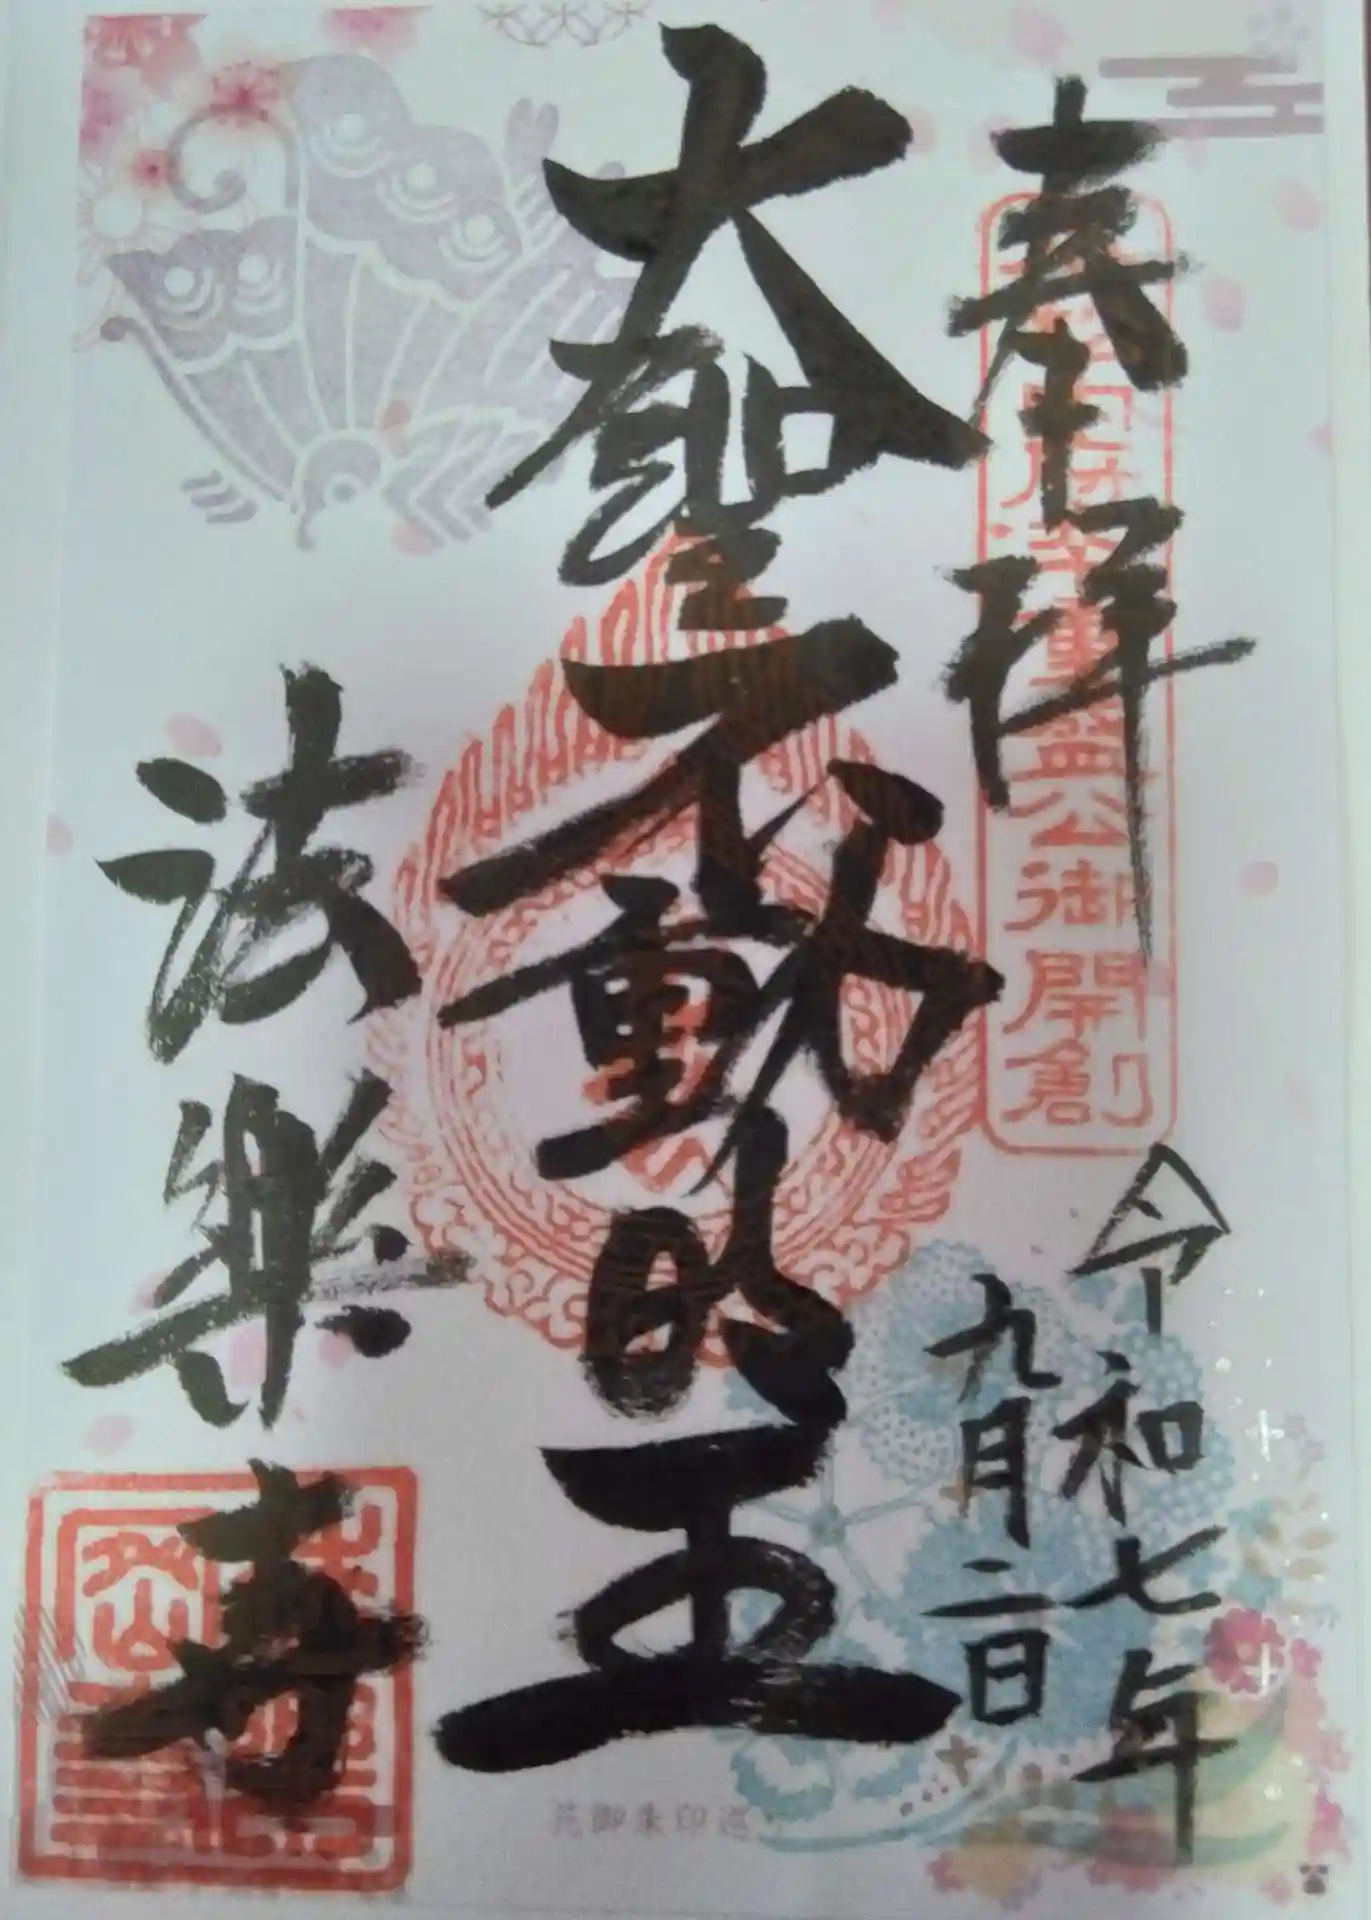 奉拝
公御開創
令和七年
九月二日
大聖不動明王
法樂寺
花御朱印巡り